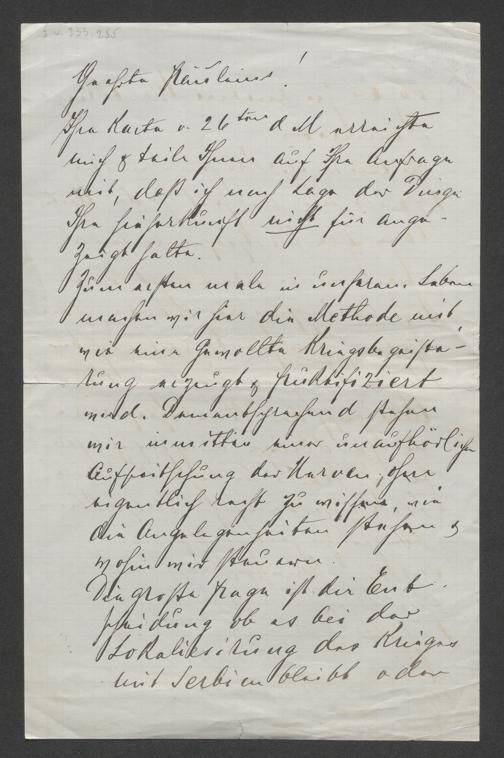 Geehrte Fräuleins!
Ihre Karte v. 26ten d M. erreichte
mich & teile Ihnen auf Ihre Anfrage
mit, daß ich nach Lage der Dinge
Ihre Hieherkunft nicht für ange-
zeigt halte.
Zum ersten male in unserem Leben
machen wir hier die Methode mit
wie eine gewollte Kriegsbegeiste-
rung erzeugt & fruktifiziert
wird. Dementsprechend stehen
wir inmitten einer unaufhörlichen
Aufpeitschung der Nerven, ohne
eigentlich recht zu wissen, wie
die Angelegenheiten stehen &
wohin wir steuern.
Die große Frage ist die Ent-
scheidung ob es bei der
Lokalisirung des Krieges
mit Serbien bleibt oder